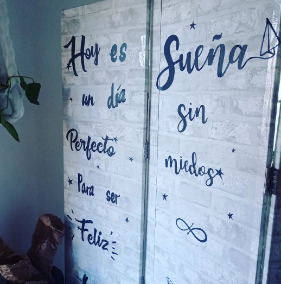 Hoy es
un día
Perfecto
Para ser
Feliz
Sueña
sin
miedos